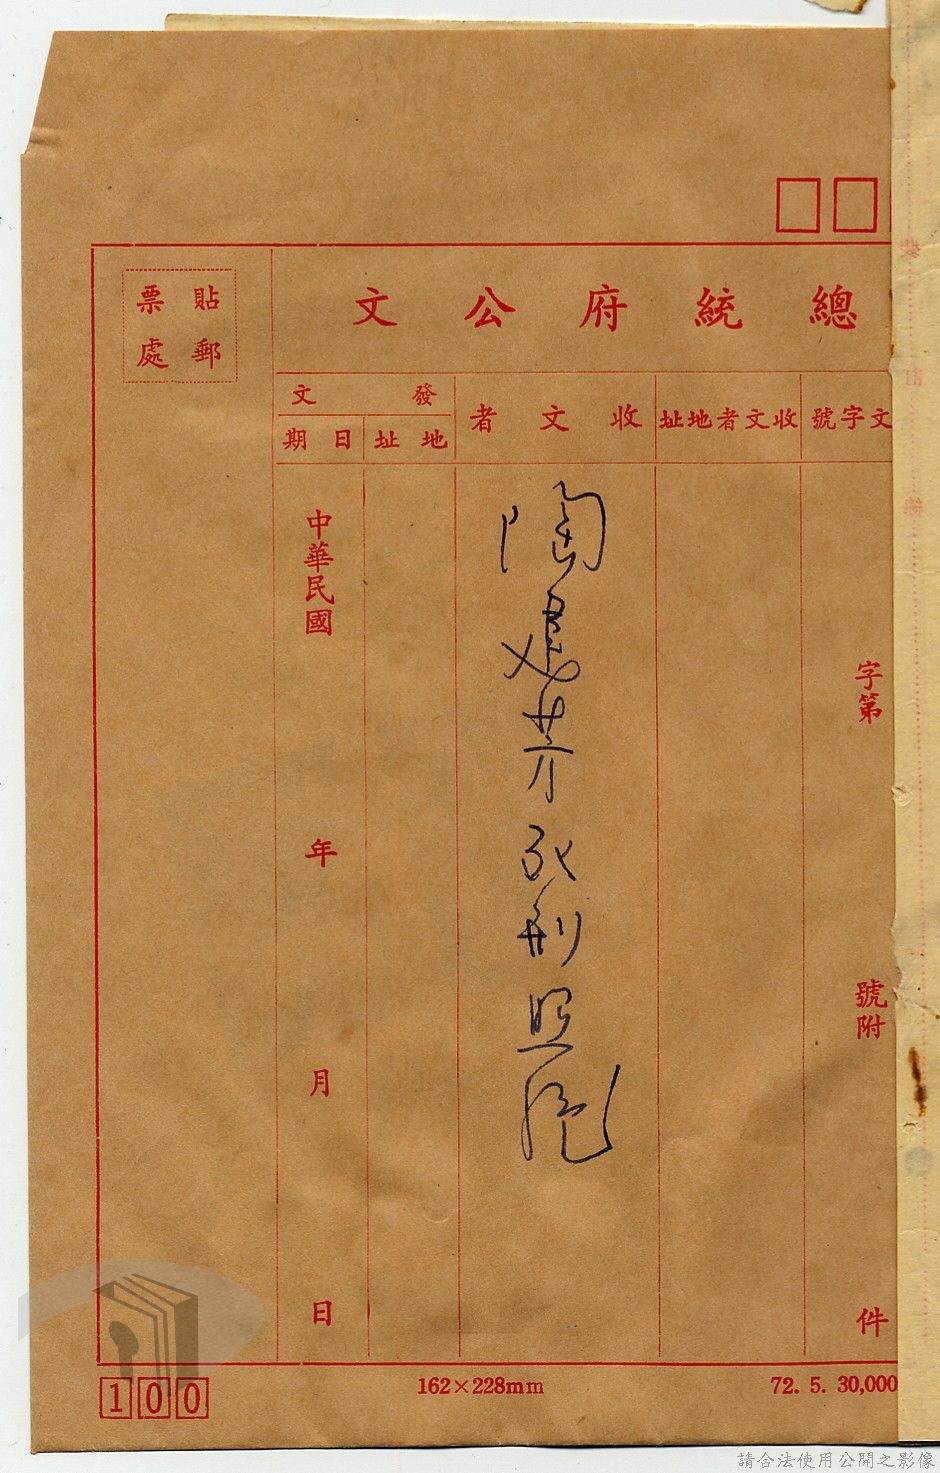 總統府公文
貼郵
票處
文字號
收文者地址
收文者
發文
地址
日期
字第
號附
件
陶建芳死刑照片
中華民國
年
月
日
100
162×228mm
72. 5. 30,000
請合法使用公開之影像